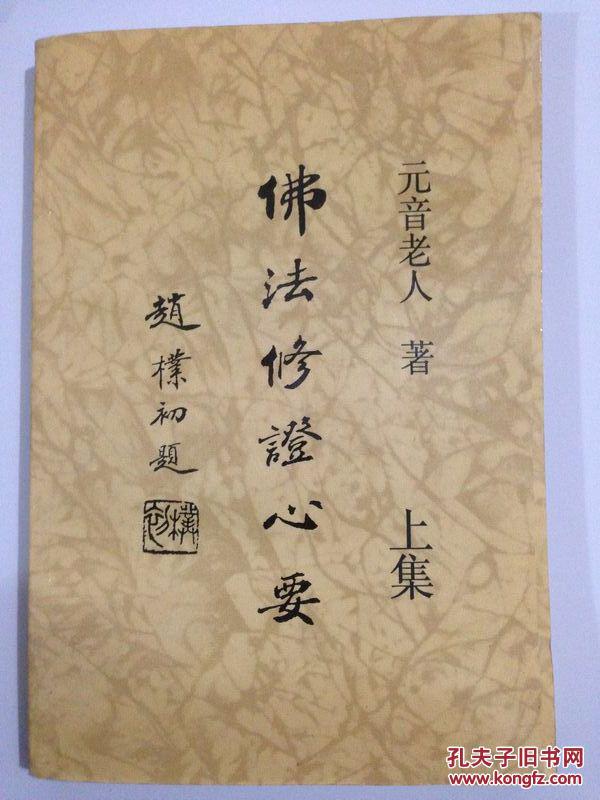 元音老人 著 上集
佛法修證心要
趙樸初題
樸初
孔夫子旧书网
www.kongfz.com